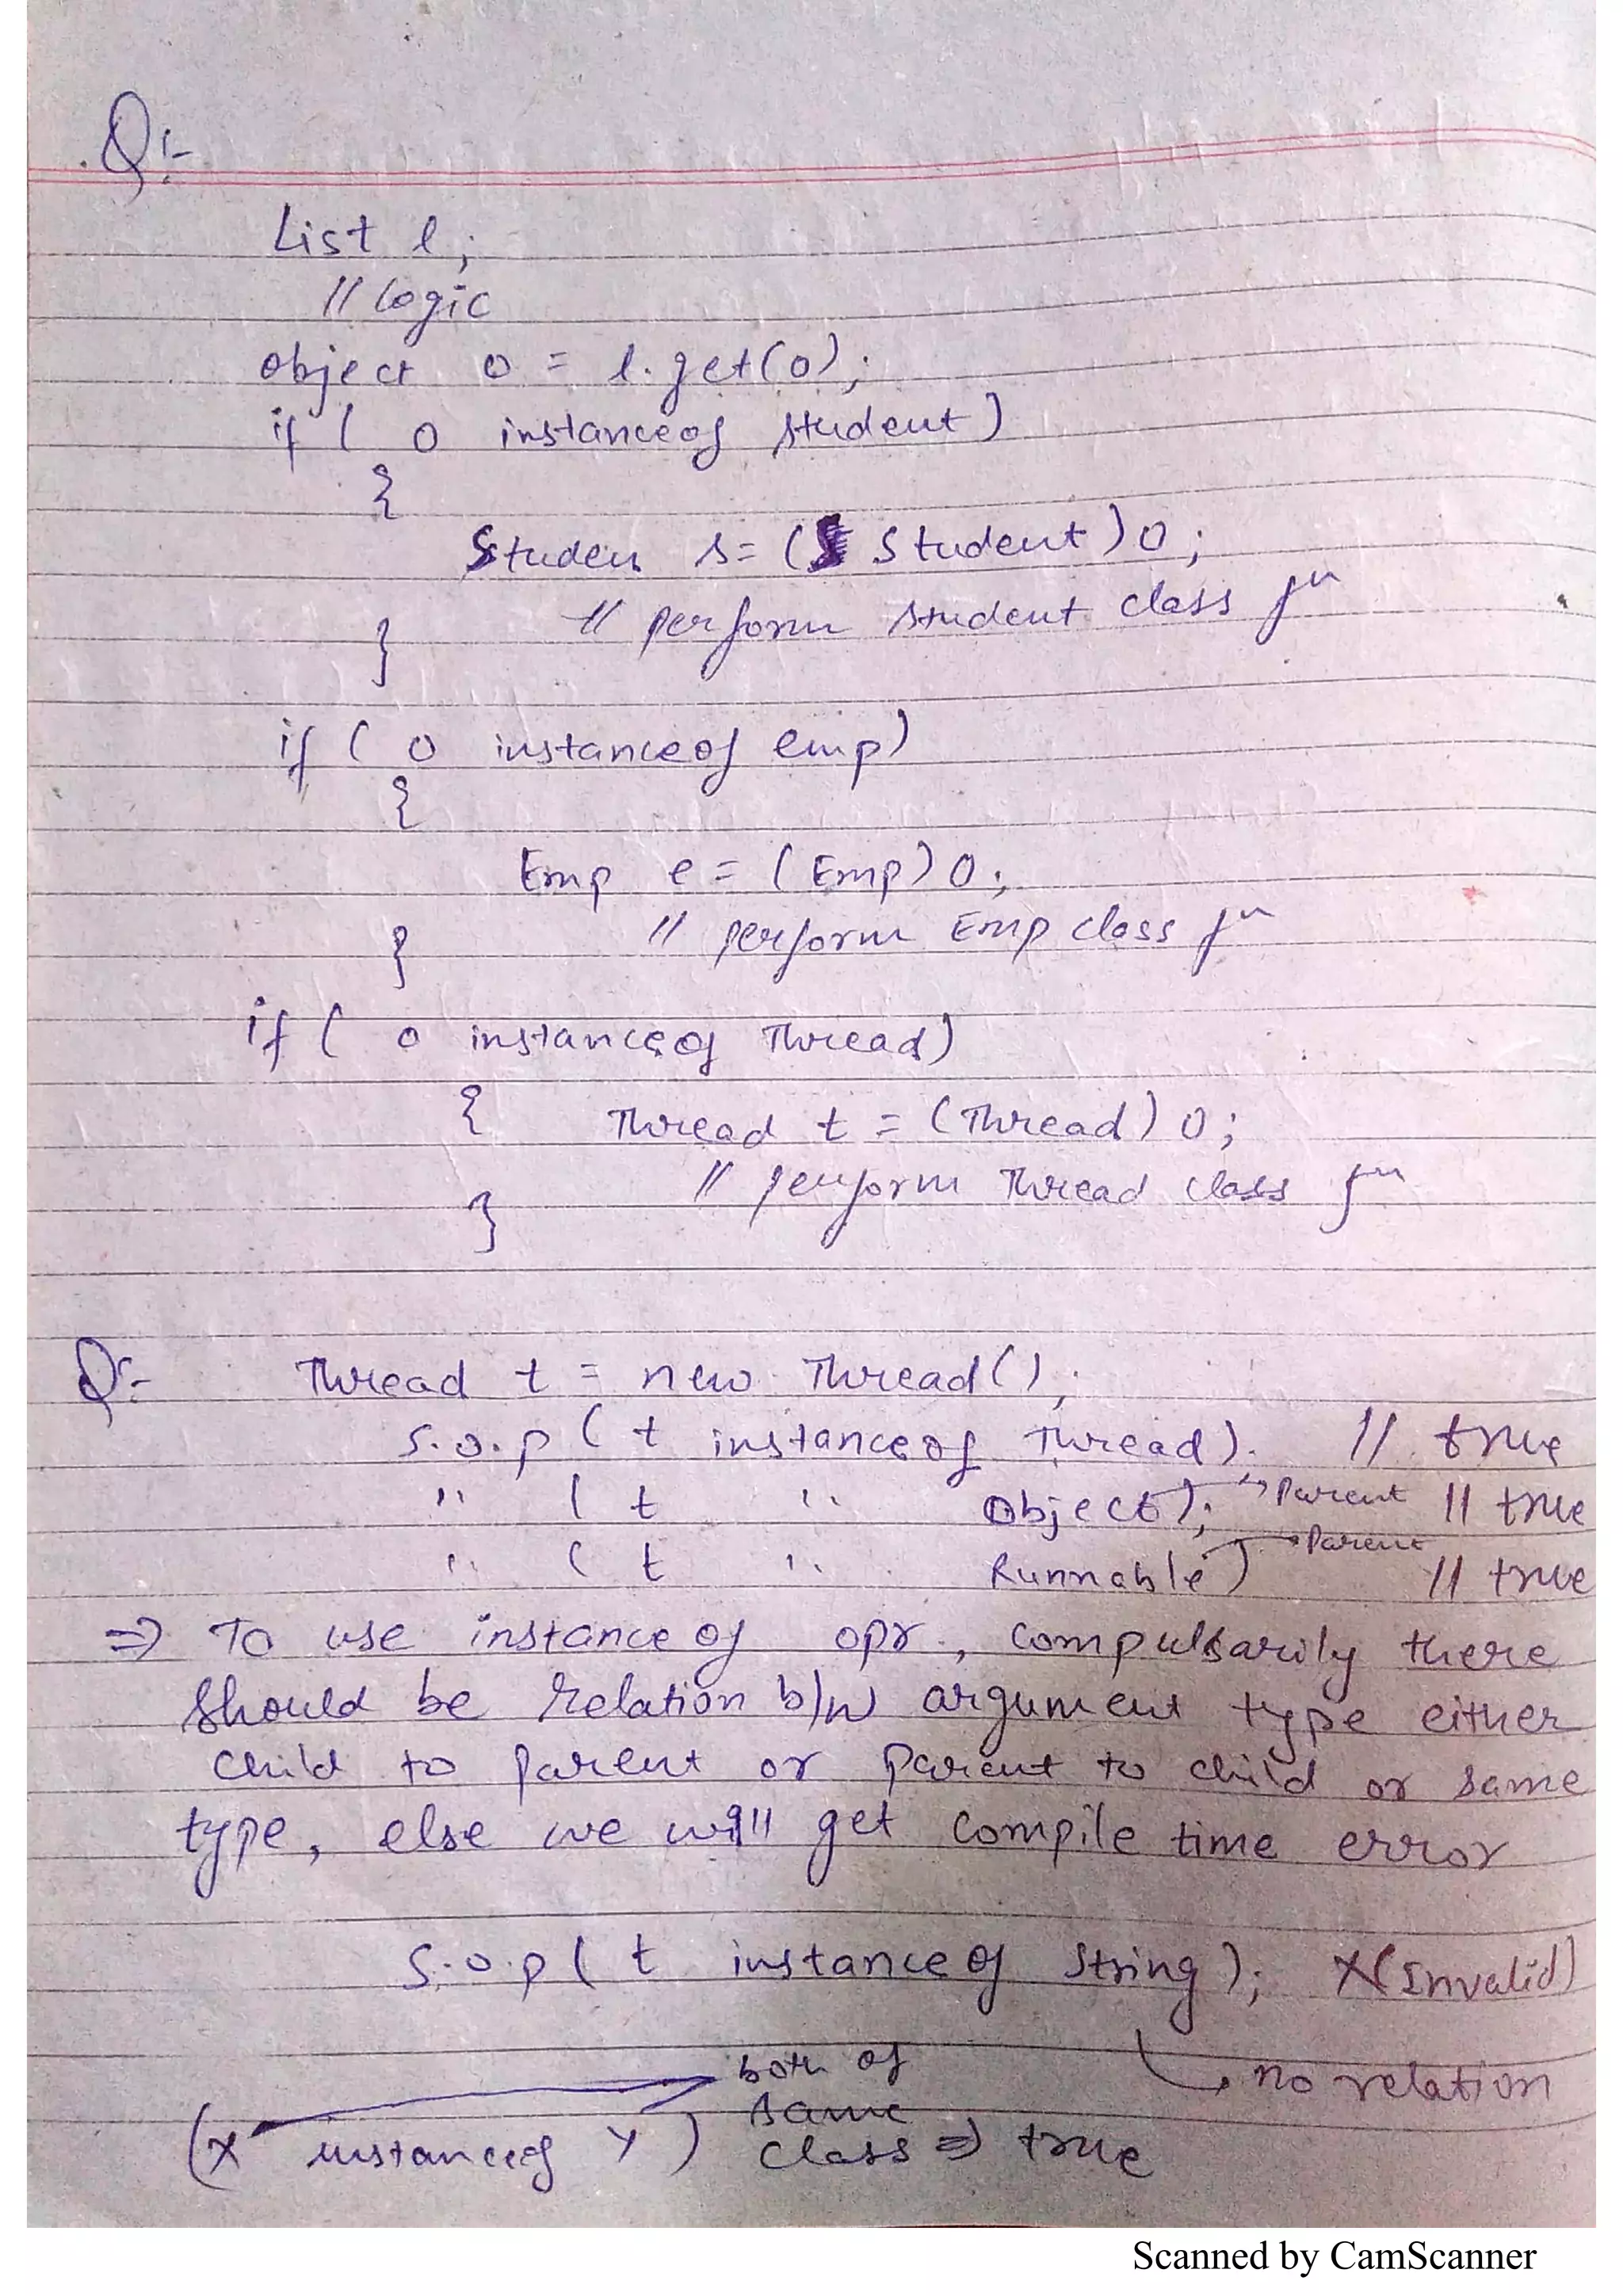 Q:-
List l;
// logic
object o = l.get(0);
if ( o instanceof student)
{
Studen s = ( Student ) o ;
// perform student class fn
}
if ( o instanceof emp)
{
Emp e = ( Emp) o ;
// perform Emp class fn
}
if ( o instanceof Thread)
{ Thread t = (Thread) o ;
// perform Thread class fn
}
Q:- Thread t = new Thread();
S.o.p ( t instanceof Thread). // true
" ( t " Object); → Parent // true
" ( t " Runnable) → Parent // true
⇒ To use instance of opr., compulsarily there
should be relation b/w argument type either
child to parent or parent to child or same
type, else we will get compile time error
S.o.p ( t instanceof String ); X (Invalid)
↳ no relation
both of
same
(X instanceof Y ) class ⇒ true
Scanned by CamScanner